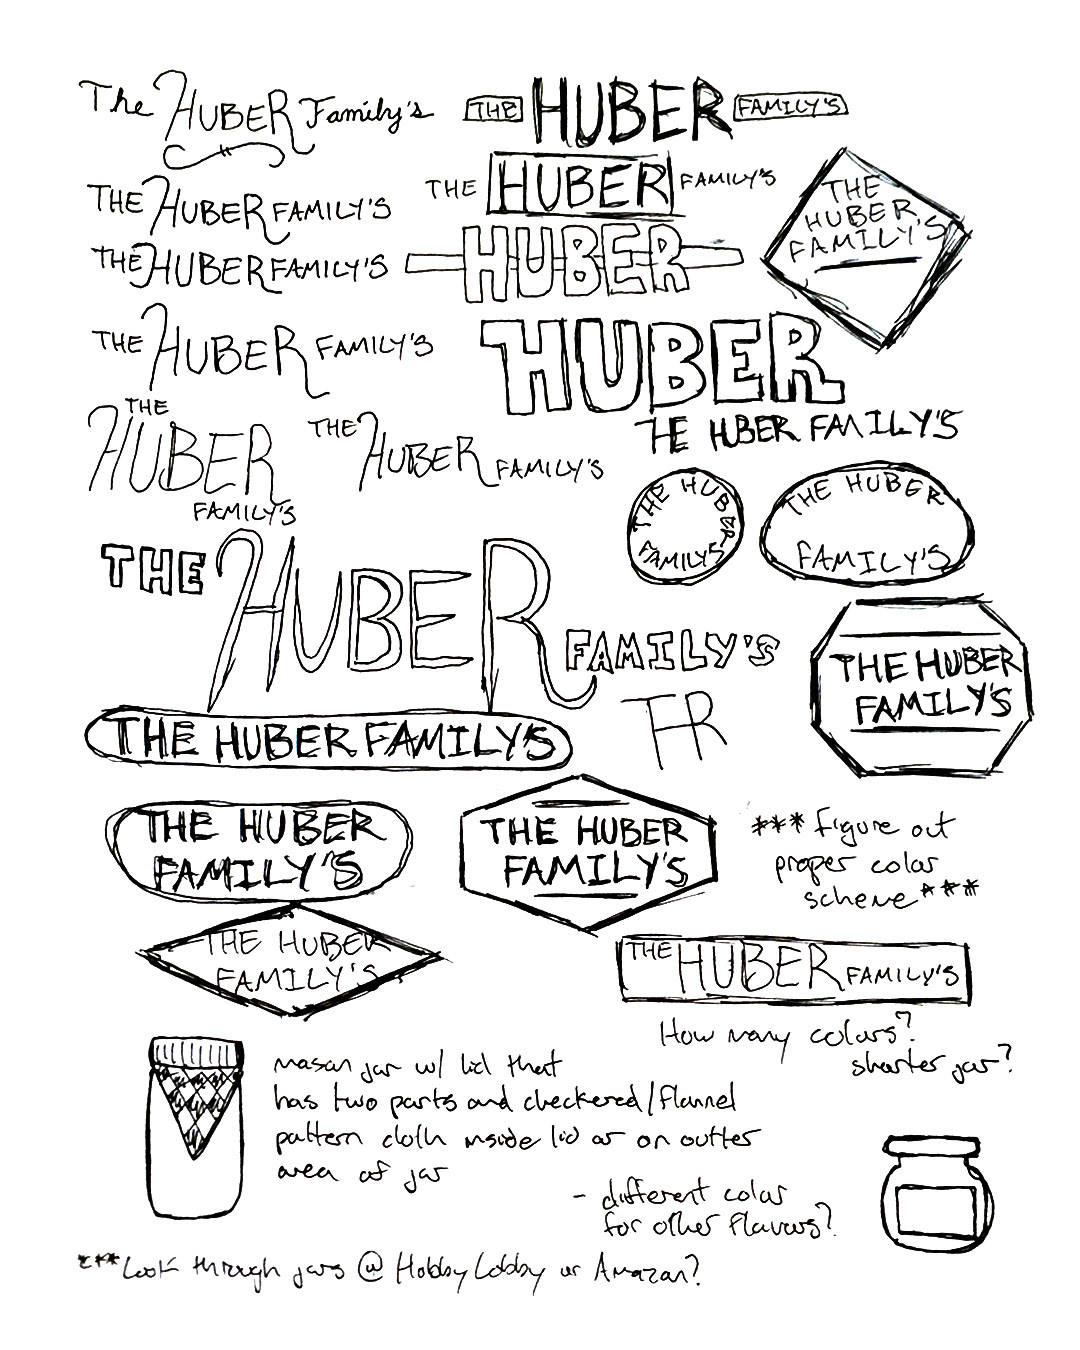 The HUBER Family's
THE HUBER FAMILY'S
THE HUBER FAMILY'S
THE HUBER FAMILY'S
THE HUBER FAMILY'S
HUBER
THE
HUBER
FAMILY'S
THE HUBER FAMILY'S
THE HUBER FAMILY'S
HUBER
THE HUBER FAMILY'S
THE
HUBER
FAMILY'S
THE HUBER FAMILY'S
THE HUBER
FAMILY'S
THE HUBER
FAMILY'S
THE HUBER FAMILY'S
THE HUBER
FAMILY'S
THE HUBER FAMILY'S
THE HUBER
FAMILY'S
THE HUBER
FAMILY'S
*** figure out
proper color
scheme ***
THE HUBER
FAMILY'S
THE HUBER FAMILY'S
How many colors?
shorter jar?
mason jar w/ lid that
has two parts and checkered/flannel
pattern cloth inside lid or on outter
area of jar
- different color
for other flavors?
***Look through jars @ Hobby Lobby or Amazon?